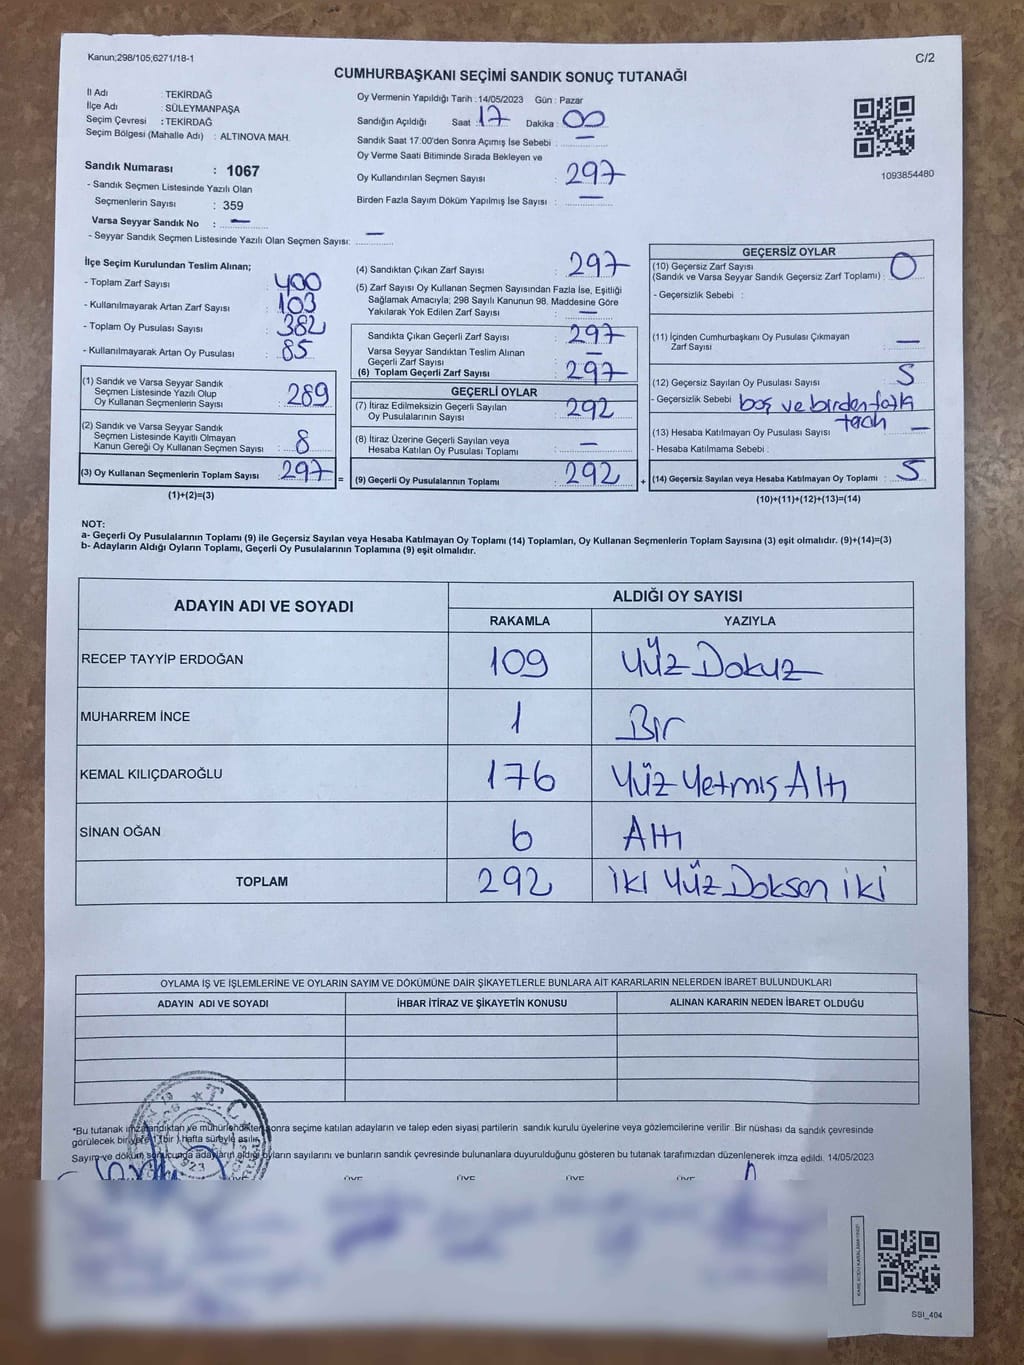 Kanun;298/105;6271/18-1
C/2
CUMHURBAŞKANI SEÇİMİ SANDIK SONUÇ TUTANAĞI
İl Adı : TEKİRDAĞ
İlçe Adı : SÜLEYMANPAŞA
Seçim Çevresi : TEKİRDAĞ
Seçim Bölgesi (Mahalle Adı) : ALTINOVA MAH.
Sandık Numarası : 1067
- Sandık Seçmen Listesinde Yazılı Olan
Seçmenlerin Sayısı : 359
Varsa Seyyar Sandık No : —
- Seyyar Sandık Seçmen Listesinde Yazılı Olan Seçmen Sayısı: —
Oy Vermenin Yapıldığı Tarih : 14/05/2023 Gün : Pazar
Sandığın Açıldığı Saat : 17 Dakika : 00
Sandık Saat 17:00'den Sonra Açımış İse Sebebi : —
Oy Verme Saati Bitiminde Sırada Bekleyen ve
Oy Kullandırılan Seçmen Sayısı : 297
Birden Fazla Sayım Döküm Yapılmış İse Sayısı : —
1093854480
İlçe Seçim Kurulundan Teslim Alınan;
- Toplam Zarf Sayısı : 400
- Kullanılmayarak Artan Zarf Sayısı : 103
- Toplam Oy Pusulası Sayısı : 382
- Kullanılmayarak Artan Oy Pusulası : 85
(1) Sandık ve Varsa Seyyar Sandık
Seçmen Listesinde Yazılı Olup
Oy Kullanan Seçmenlerin Sayısı : 289
(2) Sandık ve Varsa Seyyar Sandık
Seçmen Listesinde Kayıtlı Olmayan
Kanun Gereği Oy Kullanan Seçmen Sayısı : 8
(3) Oy Kullanan Seçmenlerin Toplam Sayısı : 297
(1)+(2)=(3)
(4) Sandıktan Çıkan Zarf Sayısı : 297
(5) Zarf Sayısı Oy Kullanan Seçmen Sayısından Fazla İse, Eşitliği
Sağlamak Amacıyla; 298 Sayılı Kanunun 98. Maddesine Göre
Yakılarak Yok Edilen Zarf Sayısı : —
Sandıkta Çıkan Geçerli Zarf Sayısı : 297
Varsa Seyyar Sandıktan Teslim Alınan
Geçerli Zarf Sayısı : —
(6) Toplam Geçerli Zarf Sayısı : 297
GEÇERLİ OYLAR
(7) İtiraz Edilmeksizin Geçerli Sayılan
Oy Pusulalarının Sayısı : 292
(8) İtiraz Üzerine Geçerli Sayılan veya
Hesaba Katılan Oy Pusulası Toplamı : —
= (9) Geçerli Oy Pusulalarının Toplamı : 292
GEÇERSİZ OYLAR
(10) Geçersiz Zarf Sayısı
(Sandık ve Varsa Seyyar Sandık Geçersiz Zarf Toplamı) : 0
- Geçersizlik Sebebi :
(11) İçinden Cumhurbaşkanı Oy Pusulası Çıkmayan
Zarf Sayısı : —
(12) Geçersiz Sayılan Oy Pusulası Sayısı : 5
- Geçersizlik Sebebi : boş ve birden fazla
(13) Hesaba Katılmayan Oy Pusulası Sayısı : —
- Hesaba Katılmama Sebebi :
+ (14) Geçersiz Sayılan veya Hesaba Katılmayan Oy Toplamı : 5
(10)+(11)+(12)+(13)=(14)
NOT:
a- Geçerli Oy Pusulalarının Toplamı (9) ile Geçersiz Sayılan veya Hesaba Katılmayan Oy Toplamı (14) Toplamları, Oy Kullanan Seçmenlerin Toplam Sayısına (3) eşit olmalıdır. (9)+(14)=(3)
b- Adayların Aldığı Oyların Toplamı, Geçerli Oy Pusulalarının Toplamına (9) eşit olmalıdır.
ADAYIN ADI VE SOYADI ALDIĞI OY SAYISI
RAKAMLA YAZIYLA
RECEP TAYYİP ERDOĞAN 109 Yüz Dokuz
MUHARREM İNCE 1 Bir
KEMAL KILIÇDAROĞLU 176 Yüz Yetmiş Altı
SİNAN OĞAN 6 Altı
TOPLAM 292 İki Yüz Doksan İki
OYLAMA İŞ VE İŞLEMLERİNE VE OYLARIN SAYIM VE DÖKÜMÜNE DAİR ŞİKAYETLERLE BUNLARA AİT KARARLARIN NELERDEN İBARET BULUNDUKLARI
ADAYIN ADI VE SOYADI İHBAR İTİRAZ VE ŞİKAYETİN KONUSU ALINAN KARARIN NEDEN İBARET OLDUĞU
T.C.
1923
*Bu tutanak imzalandıktan ve mühürlendikten sonra seçime katılan adayların ve talep eden siyasi partilerin sandık kurulu üyelerine veya gözlemcilerine verilir. Bir nüshası da sandık çevresinde
görülecek bir yere 1 (bir) hafta süreyle asılır.
Sayım ve döküm sonucunda adayların aldığı oyların sayılarını ve bunların sandık çevresinde bulunanlara duyurulduğunu gösteren bu tutanak tarafımızdan düzenlenerek imza edildi. 14/05/2023
ÜYE ÜYE ÜYE ÜYE
SSI_404